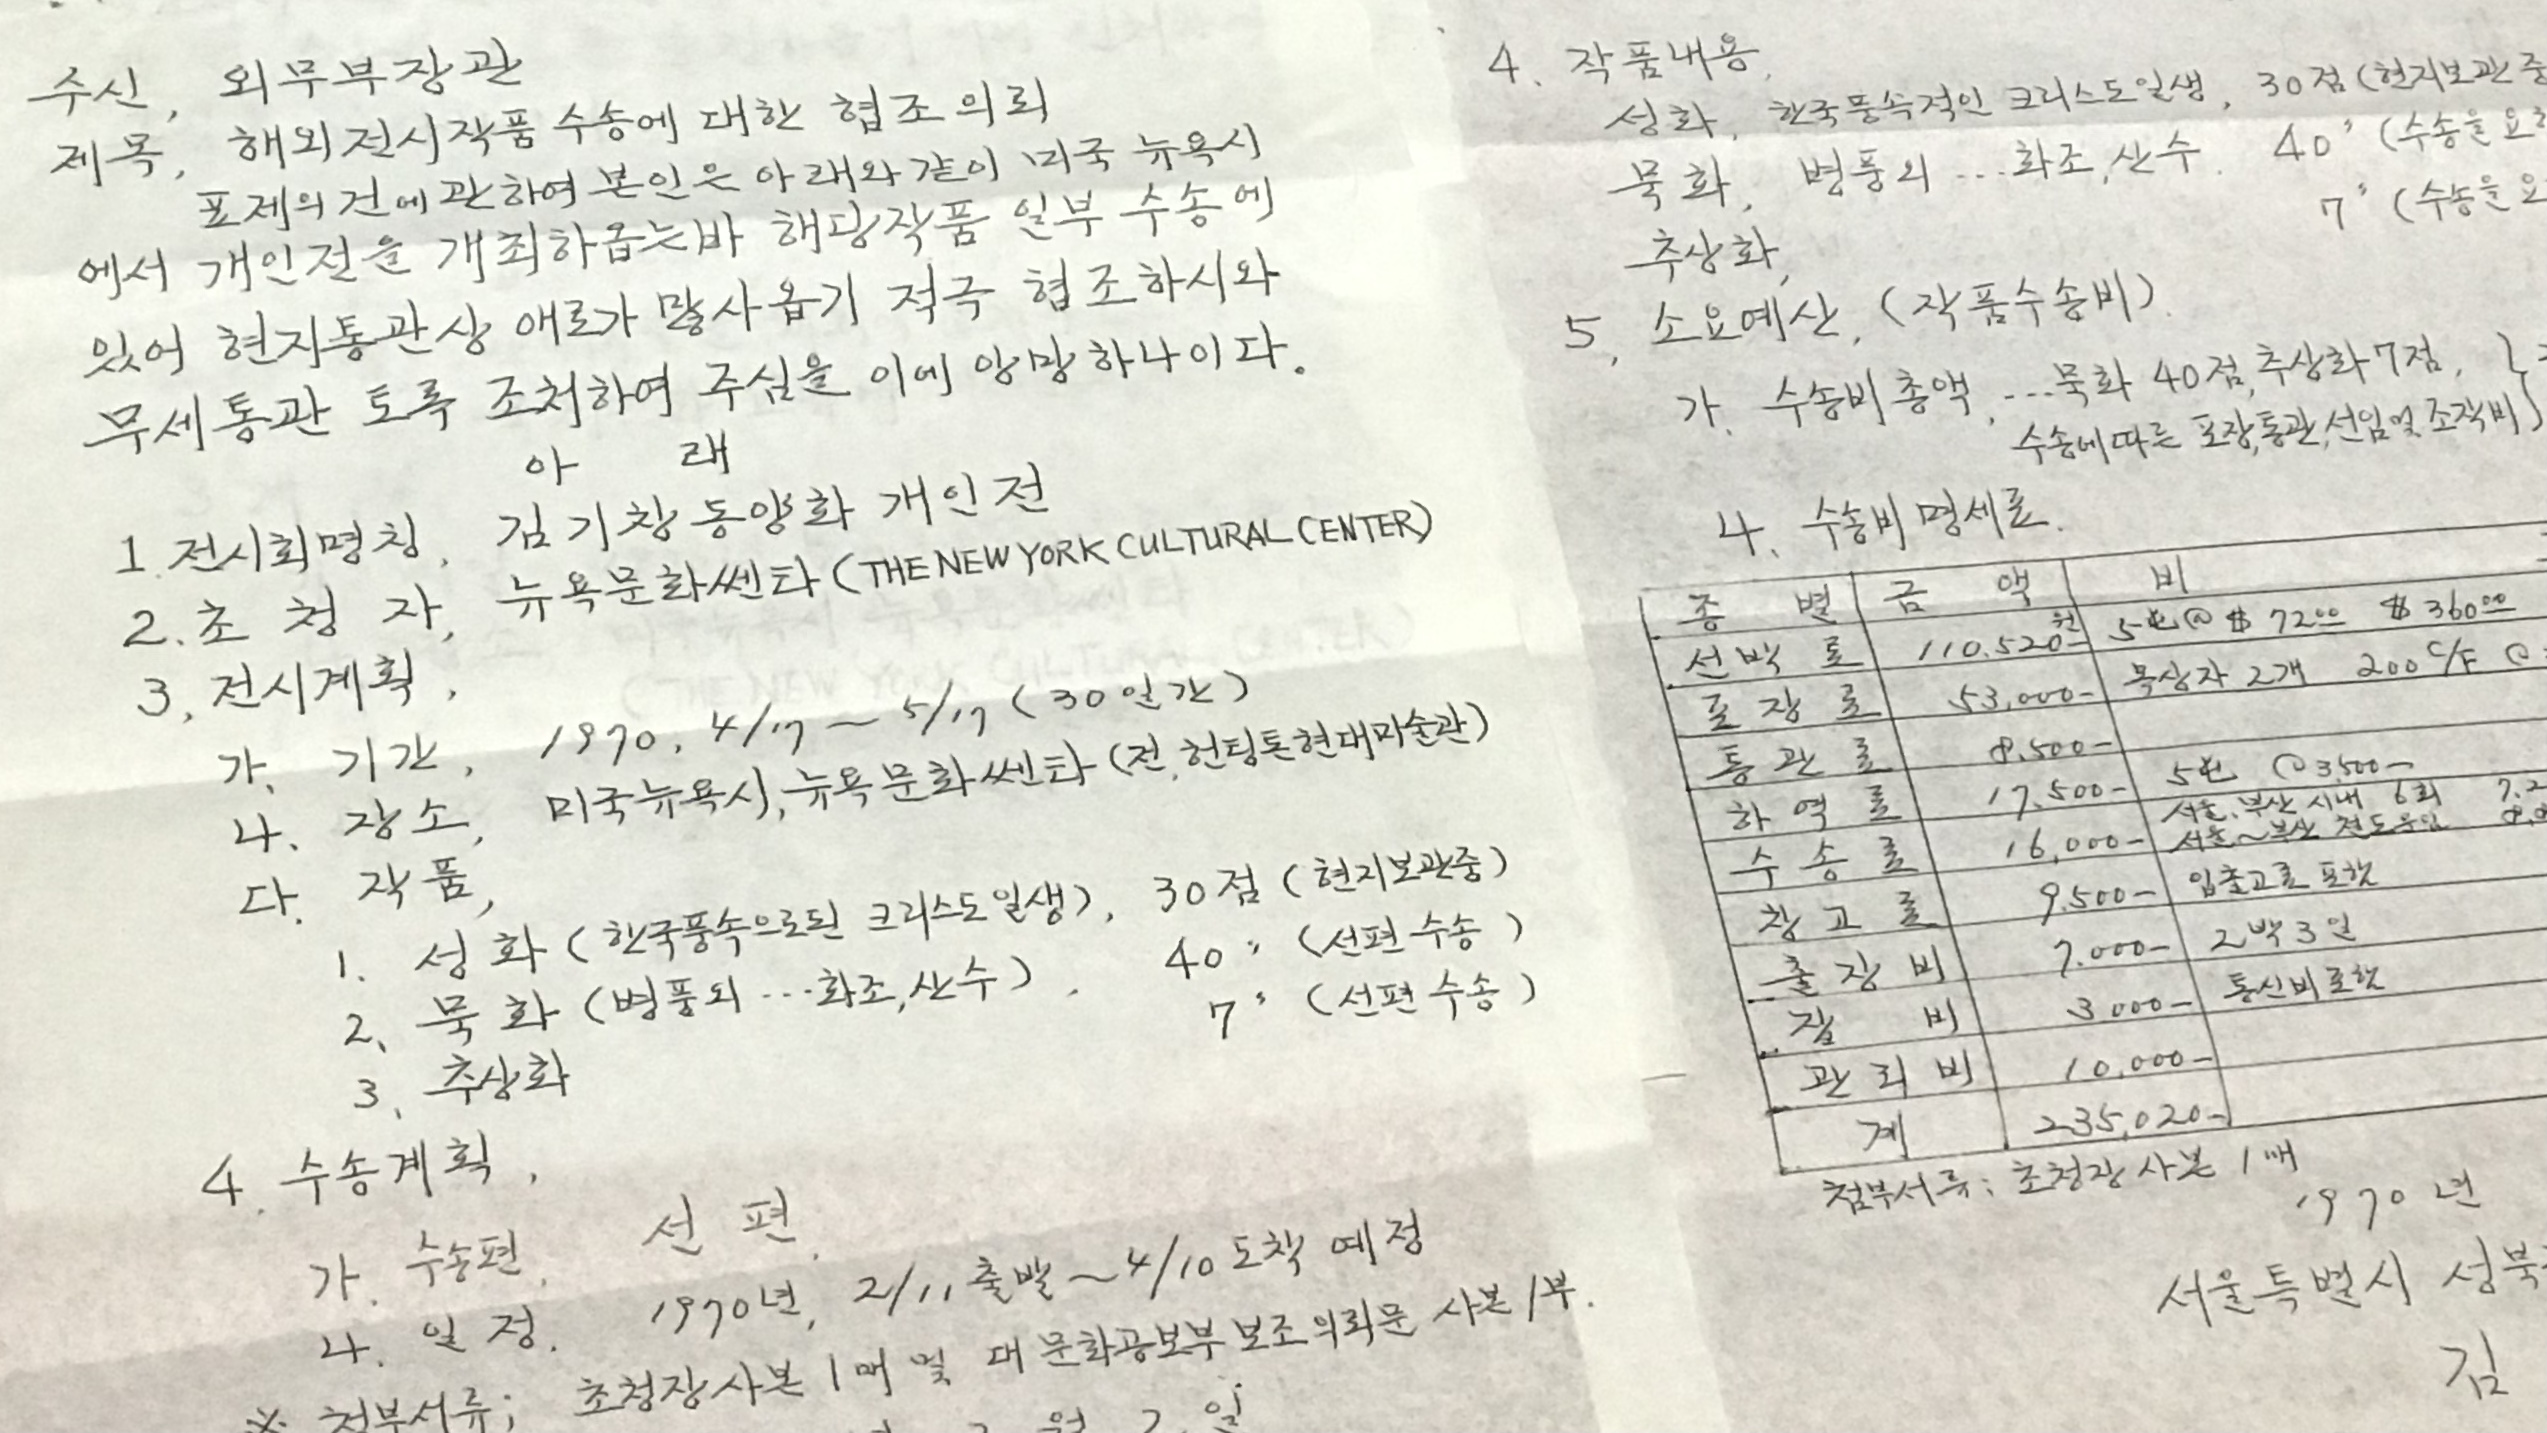 수신, 외무부장관
제목, 해외전시작품 수송에 대한 협조의뢰
표제의 건에 관하여 본인은 아래와 같이 미국 뉴욕시
에서 개인전을 개최하옵는바 해당작품 일부 수송에
있어 현지통관상 애로가 많사옵기 적극 협조하시와
무세통관 토록 조처하여 주심을 이에 앙망하나이다.
아 래
1. 전시회명칭, 김기창 동양화 개인전
2. 초 청 자, 뉴욕문화쎈타 (THE NEW YORK CULTURAL CENTER)
3, 전시계획,
가. 기간, 1970, 4/17 ~ 5/17 (30일간)
나. 장소, 미국뉴욕시, 뉴욕문화쎈타 (전, 헌팅톤현대미술관)
다. 작품,
1. 성화 (한국풍속으로된 크리스도일생), 30점 (현지보관중)
2, 묵화 (병풍외 ...화조,산수), 40〃 (선편 수송)
3, 추상화 7〃 (선편 수송)
4. 수송계획,
가. 수송편, 선 편,
나. 일 정. 1970년, 2/11 출발 ~ 4/10 도착 예정
※ 첨부서류; 초청장사본 1매 및 대 문화공보부 보조의뢰문 사본 1부.
월 2일
4. 작품내용,
성화, 한국풍속적인 크리스도일생, 30점 (현지보관중
묵화, 병풍외 ...화조,산수. 40〃 (수송을 요
추상화, 7〃 (수송을 요
5, 소요예산, (작품수송비)
가. 수송비총액, ...묵화 40점, 추상화 7점, }
수송에따른 포장,통관,선임및 조작비
나. 수송비 명세표.
종 별 금 액 비
선박료 110.520원 5屯@ $ 72.00 $ 360.00
포장료 53,000- 목상자 2개 200 C/F @
통관료 8.500-
하역료 17.500- 5屯 @3,500-
수송료 16,000- 서울,부산 시내 6회 7.2
서울~부산 철도운임 8,8
창고료 9.500- 입출고료 포함
출장비 7.000- 2박3일
잡 비 3.000- 통신비 포함
관리비 10,000-
계 235,020-
첨부서류; 초청장 사본 1매
1970년
서울특별시 성북
김